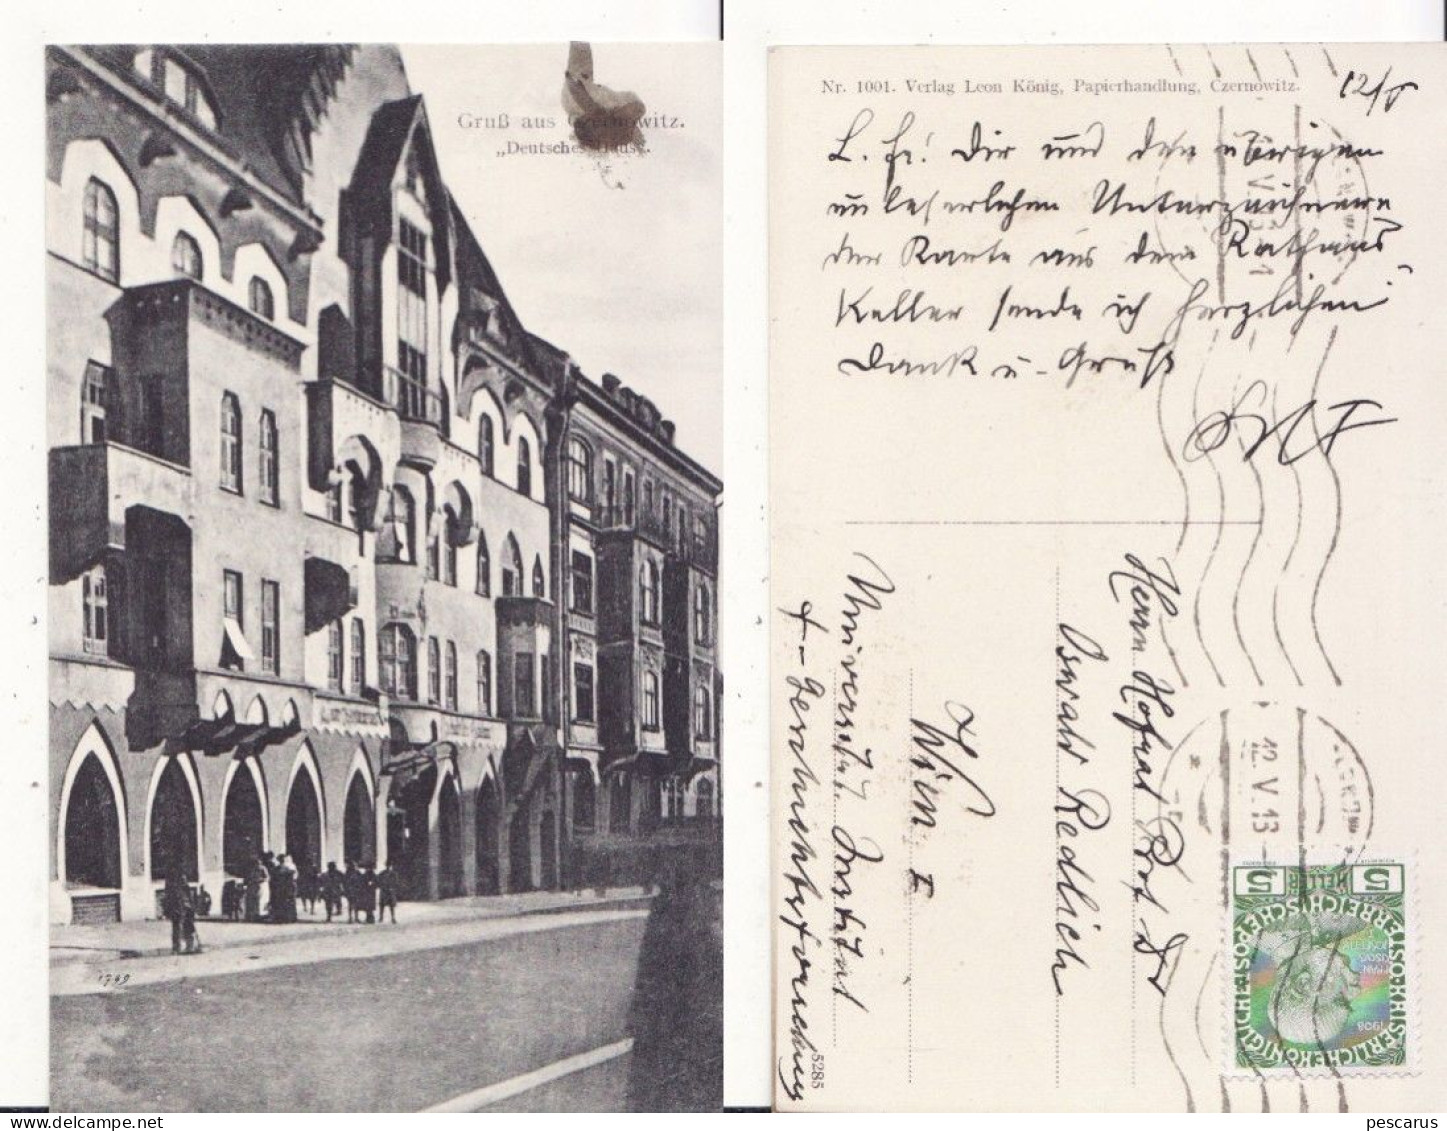 Gruß aus Czernowitz.
„Deutsches Haus“.
1949
Nr. 1001. Verlag Leon König, Papierhandlung, Czernowitz.
12/V
L. Fr! Dir und den übrigen
unleserlichen Unterzeichnern
der Karte aus dem Rathaus-
Keller sende ich herzlichen
Dank u. Gruß
Herrn Hofrat Prof Dr
Oswald Redlich
Wien I
Universität. Institut
f. Geschichtsforschung
5285
12.V.13
5 HELLER 5
KAISERLICHEKÖNIGLICHE
ÖSTERREICHISCHE POST
1908
pescarus